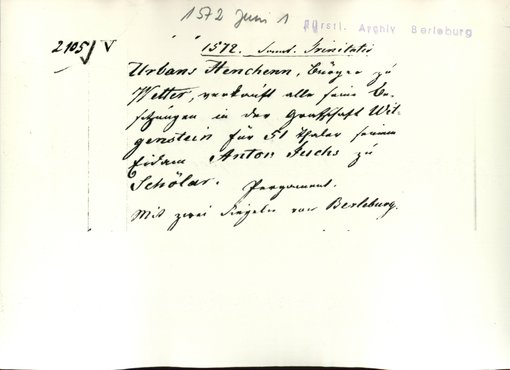 1572 Juni 1
Fürstl. Archiv Berleburg
2105/V
" " 1572. Sonnt. Trinitatis
Urbans Henchenn, Bürger zu
Wetter, verkauft alle seine Be-
sitzungen in der Grafschaft Wit-
genstein für 51 Thaler seinem
Eidam Anton Fuchs zu
Schölar. Pergament.
Mit zwei Siegeln von Berleburg.